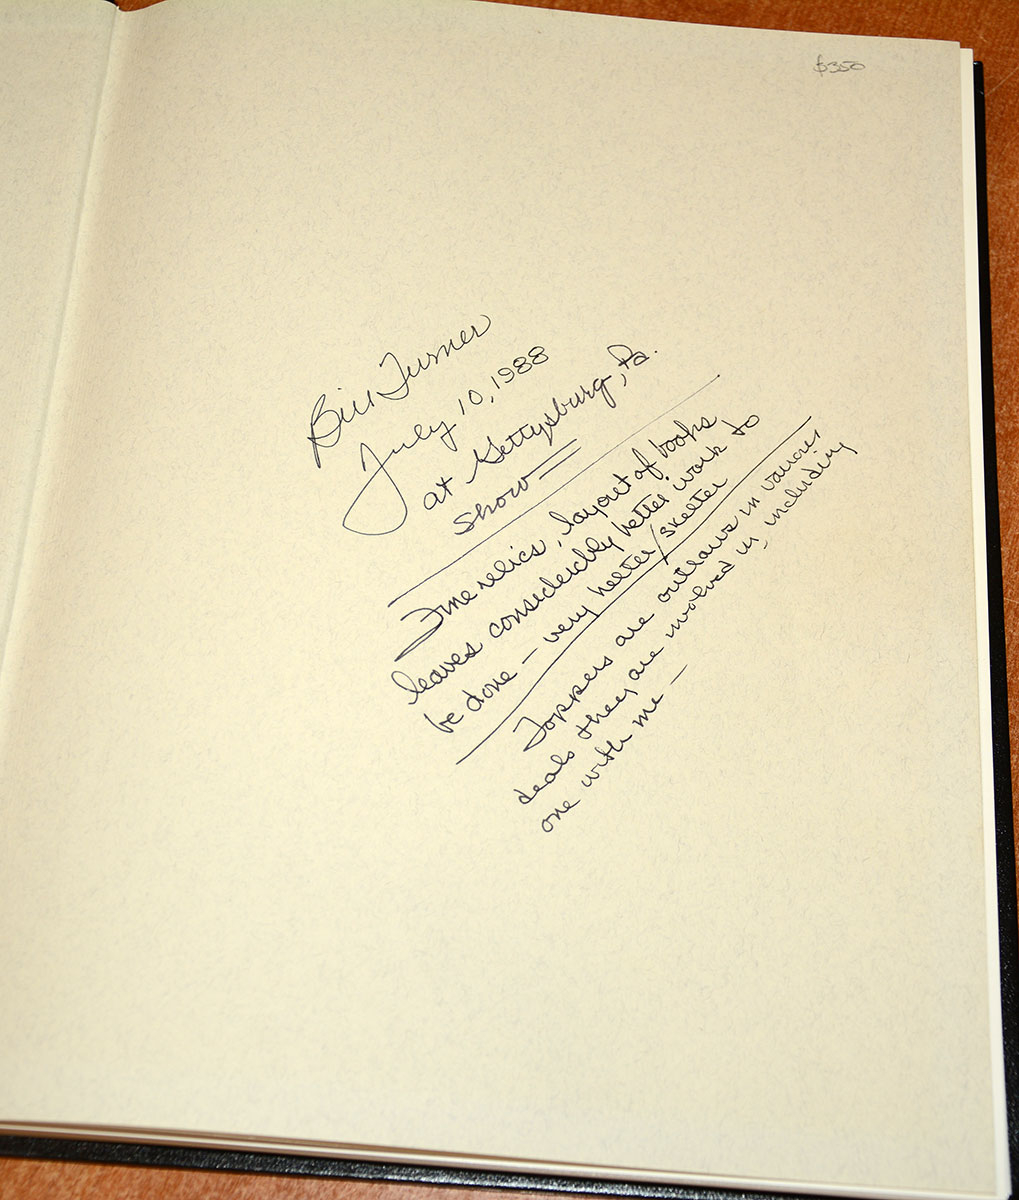 $350
Bill Turner
July 10, 1988
at Gettysburg, Pa.
show
Fine relics, layout of books
leaves considerably better work to
be done - very helter/skelter
Toppers are outlaws in various
deals they are involved in, including
one with me -